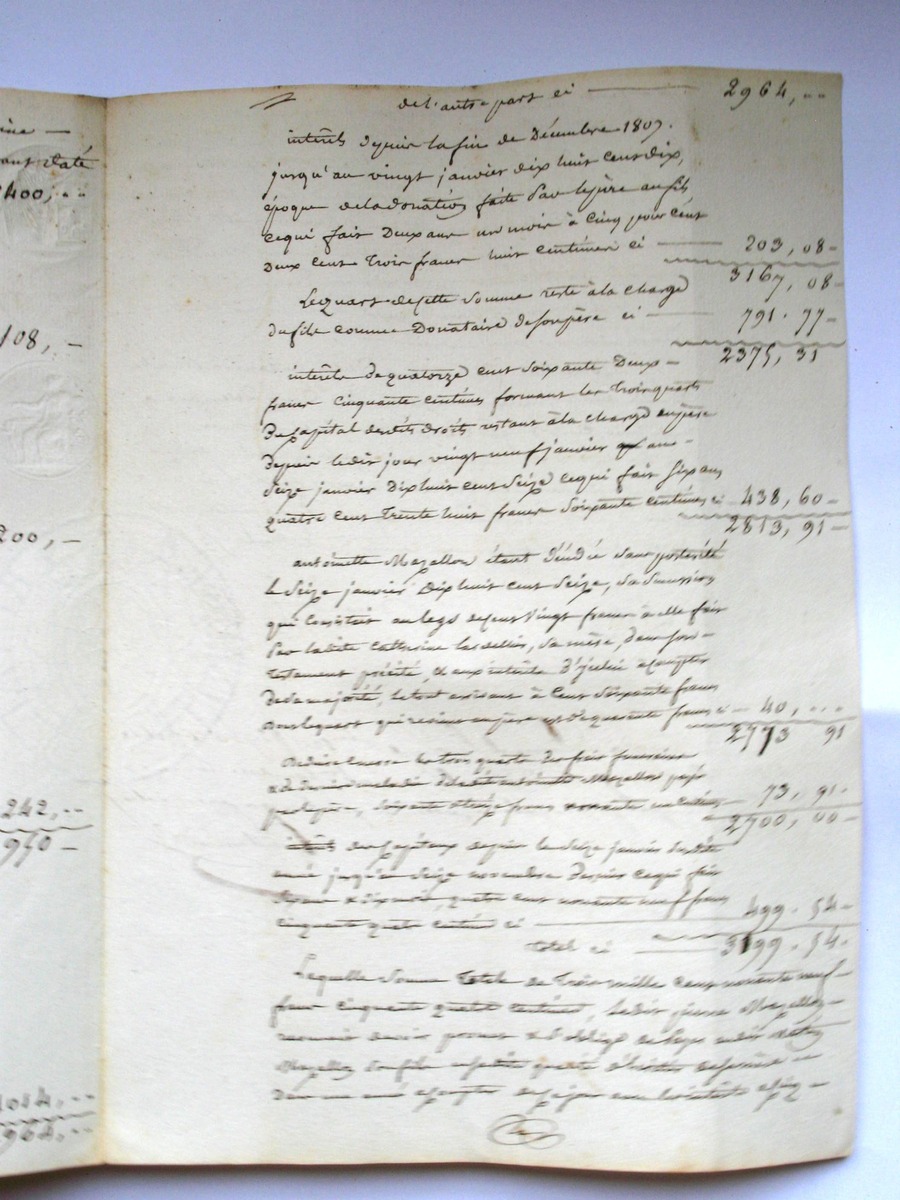 ine —
ant daté
2400, ..
108, —
200, —
242, ..
950 —
1014, ..
964, ..
de l'autre part ci — 2964, ..
intérêts depuis la fin de Décembre 1807.
jusqu'au vingt janvier dix huit cent dix,
époque de la donation faite par le père au fils
ce qui fait Deux ans un mois à Cinq pour Cent
Deux cent trois francs huit centimes ci — 203, 08 —
3167, 08 —
Le quart de cette somme reste à la charge
du fils comme Donataire de son père ci — 791. 77 —
2375, 31
intérêts de quatorze cent soixante Deux —
francs Cinquante centimes formant les trois quarts
Du Capital desdits droits restant à la charge du père
Depuis ledit jour vingt neuf janvier
Seize janvier Dix huit cent Seize ce qui fait six ans
quatre cent trente huit francs soixante centimes ci — 438, 60 —
2813, 91 —
antoinette Mazellon étant décédée sans postérité
le Seize janvier Dix huit cent Seize, sa succession
qui Consistait au legs de cent vingt francs à elle fait
Par ladite Catherine sa mère, dans son —
testament précité, et aux intérêts d'icelui à compter
De sa majorité, le tout arrivant à Cent soixante francs
Dont le quart qui revient au père est de quarante francs ci — 40, ...
2773 91
les trois quarts des frais funéraires
et de dernière maladie de ladite antoinette Mazellon payés
par le père, soixante treize francs nonante un centimes — 73, 91 —
2700, 00 —
intérêts des Capitaux depuis le Seize janvier
année jusqu'au Seize novembre dernier ce qui fait
quatre cent nonante neuf francs
cinquante quatre centimes ci — 499. 54 —
total ci — 3199. 54.
Laquelle Somme totale de Trois mille cent nonante neuf —
francs cinquante quatre centimes, ledit Mazellon
promet et s'oblige de payer audit
Mazellon son fils
Dans une année à compter de ce jour avec les intérêts